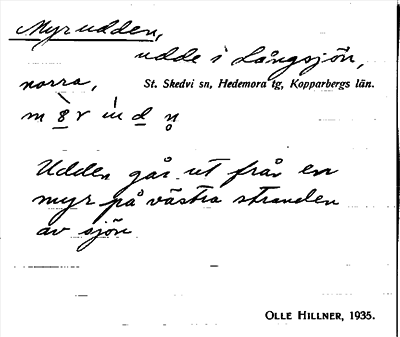 Myrudden,
udde i Långsjön,
norra, St. Skedvi sn, Hedemora tg, Kopparbergs län.
Udden går ut från en
myr på västra stranden
av sjön
OLLE HILLNER, 1935.